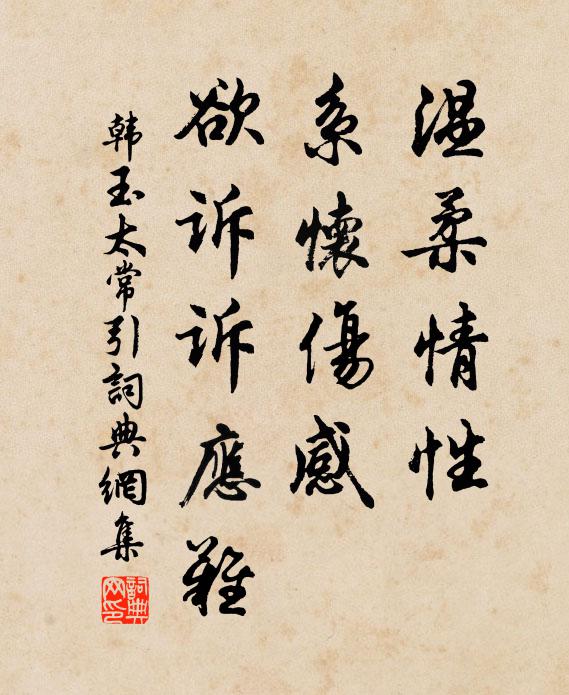 温柔情性
系懷傷感
欲诉诉應難
韩玉太常引詞典網集
詞典網印